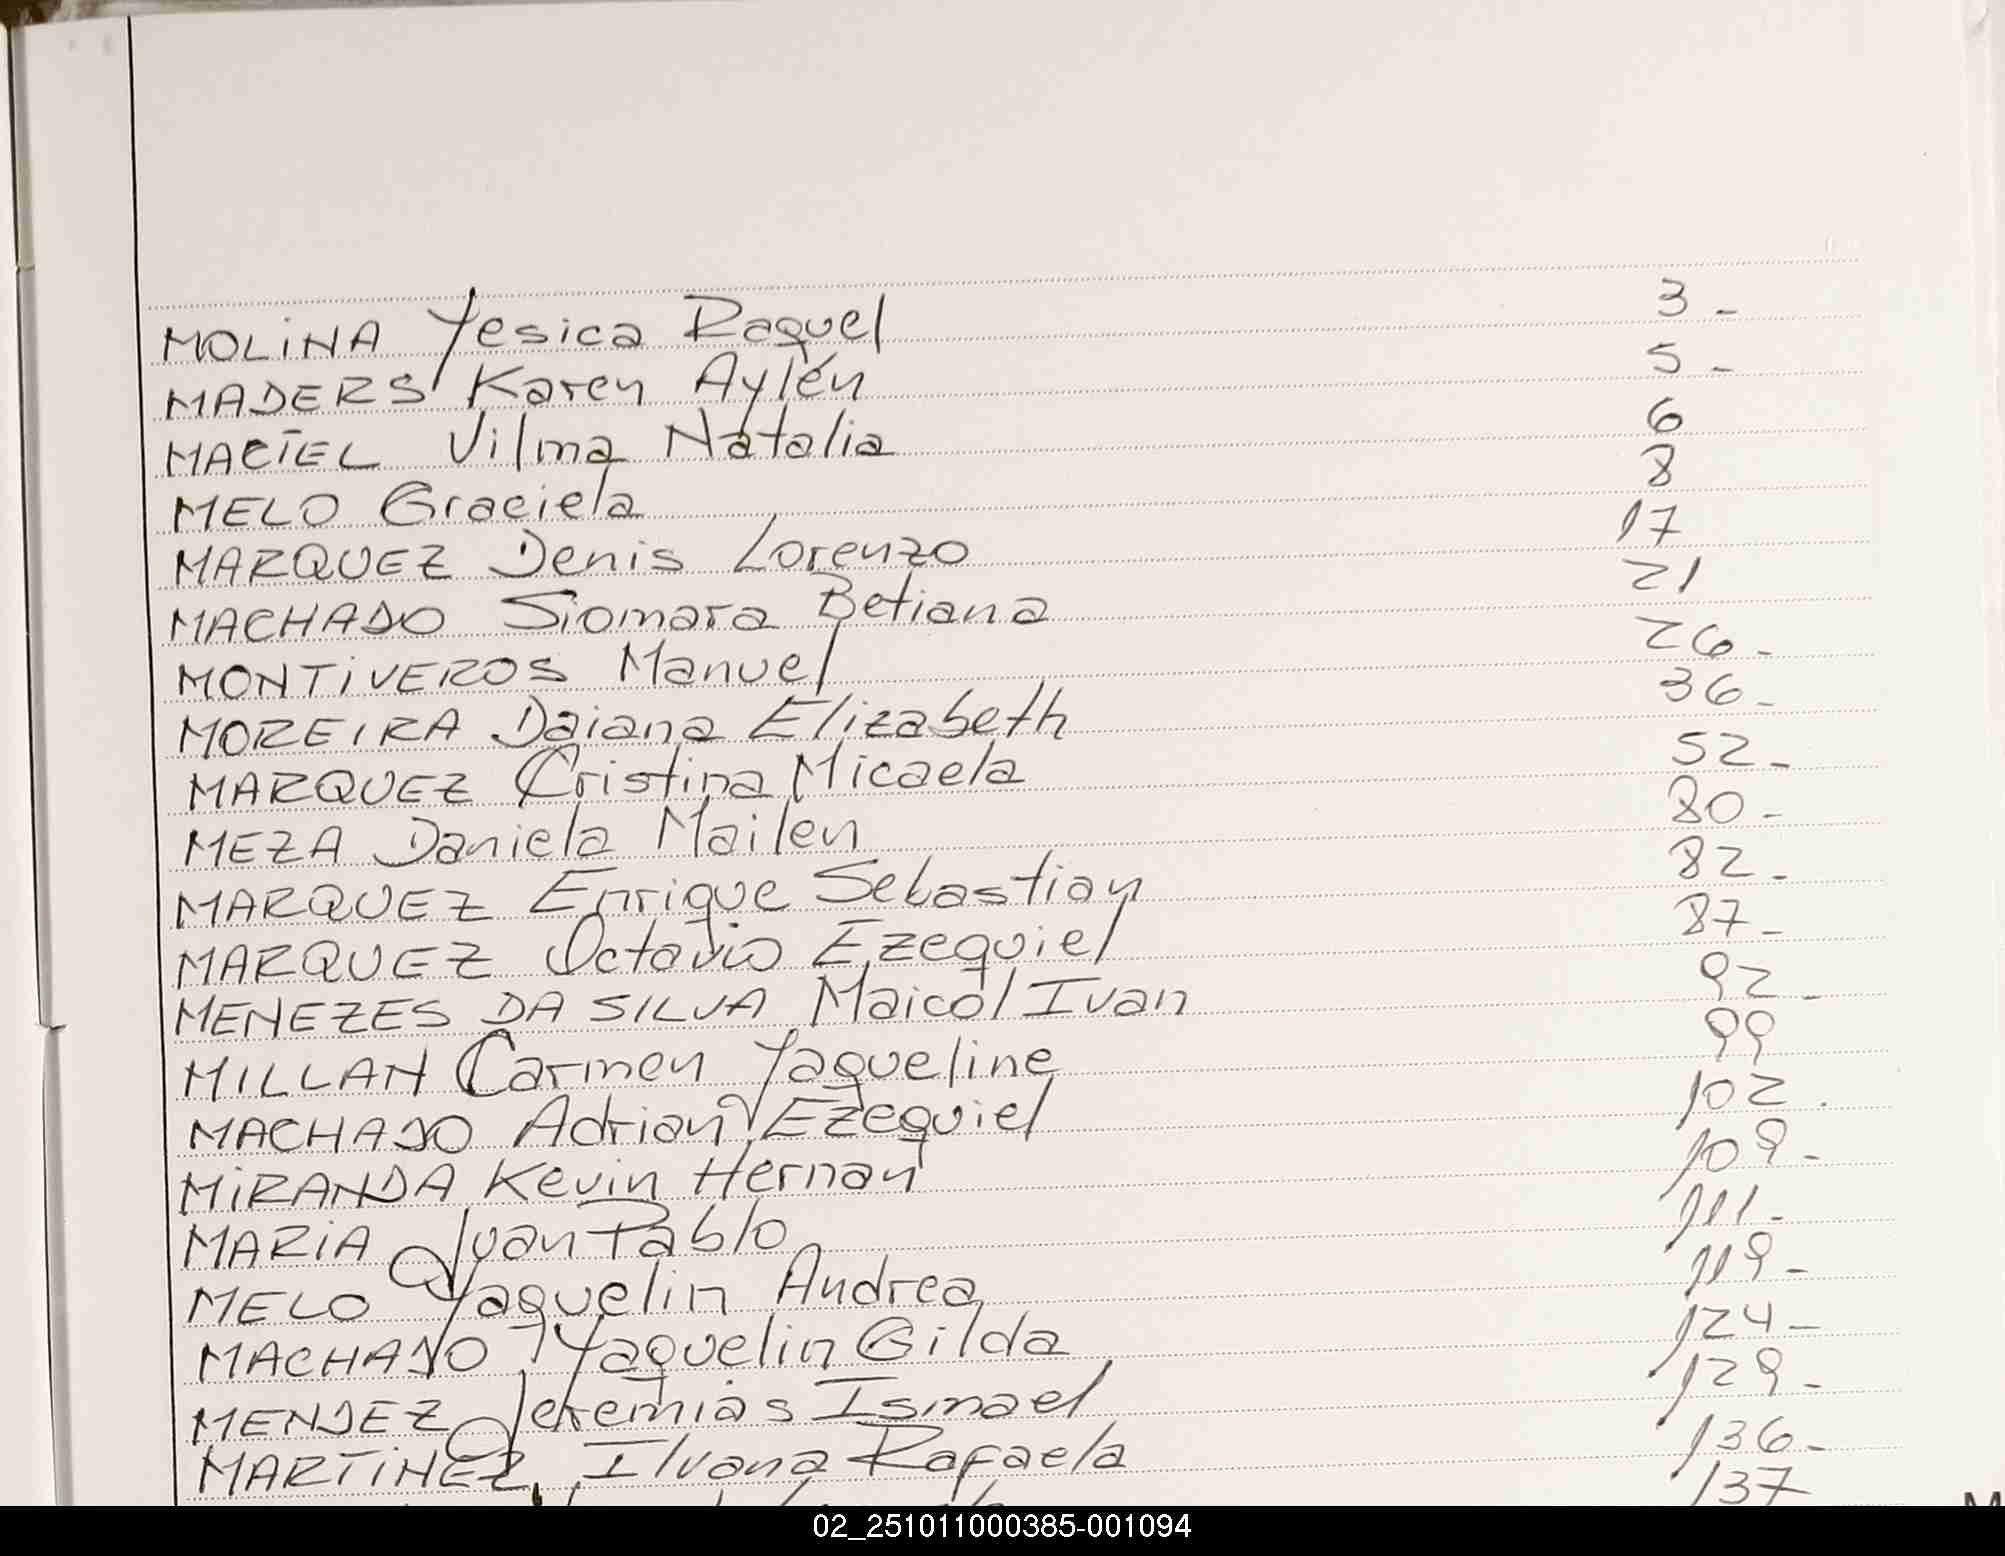 MOLINA Yesica Raquel 3 -
MADERS Karen Aylén 5 -
MACIEL Vilma Natalia 6
MELO Graciela 8
MARQUEZ Denis Lorenzo 17
MACHADO Siomara Betiana 21
MONTIVEROS Manuel 26 -
MOREIRA Daiana Elizabeth 36 -
MARQUEZ Cristina Micaela 52 -
MEZA Daniela Mailen 80 -
MARQUEZ Enrique Sebastian 82 -
MARQUEZ Octavio Ezequiel 87 -
MENEZES DA SILVA Maicol Ivan 92 -
MILLAN Carmen Yaqueline 99
MACHADO Adrian Ezequiel 102 .
MIRANDA Kevin Hernan 109 -
MARIA Juan Pablo 111 -
MELO Yaquelin Andrea 119 -
MACHADO Yaquelin Gilda 124 -
MENDEZ Jeremias Ismael 129 -
MARTINEZ Ilvana Rafaela 136 -
137
02_251011000385-001094